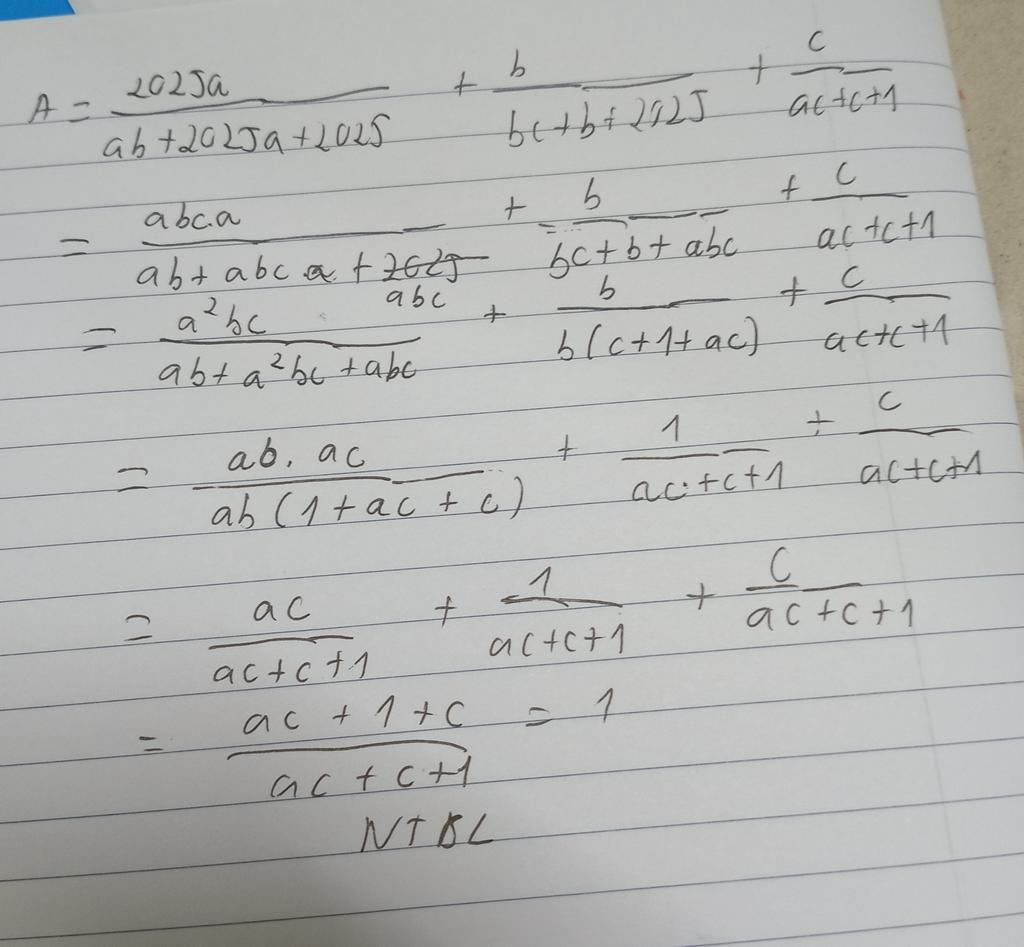 A = 2025a / (ab + 2025a + 2025) + b / (bc + b + 2025) + c / (ac + c + 1)
= abc.a / (ab + abc a + ~~2025~~ abc) + b / (bc + b + abc) + c / (ac + c + 1)
= a²bc / (ab + a²bc + abc) + b / (b(c + 1 + ac)) + c / (ac + c + 1)
= ab. ac / (ab (1 + ac + c)) + 1 / (ac + c + 1) + c / (ac + c + 1)
= ac / (ac + c + 1) + 1 / (ac + c + 1) + c / (ac + c + 1)
= (ac + 1 + c) / (ac + c + 1) = 1
NTBL